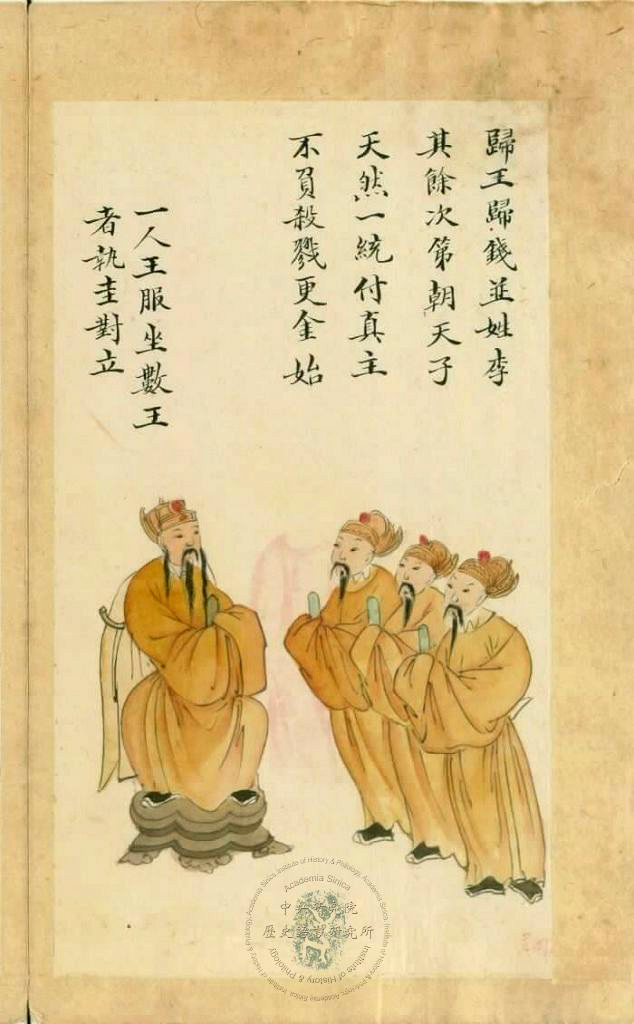 歸王歸錢並姓李
其餘次第朝天子
天然一統付真主
不負殺戮更金始
一人王服坐數王
者執圭對立
Academia Sinica
中央研究院
歷史語言研究所
Institute of History & Philology